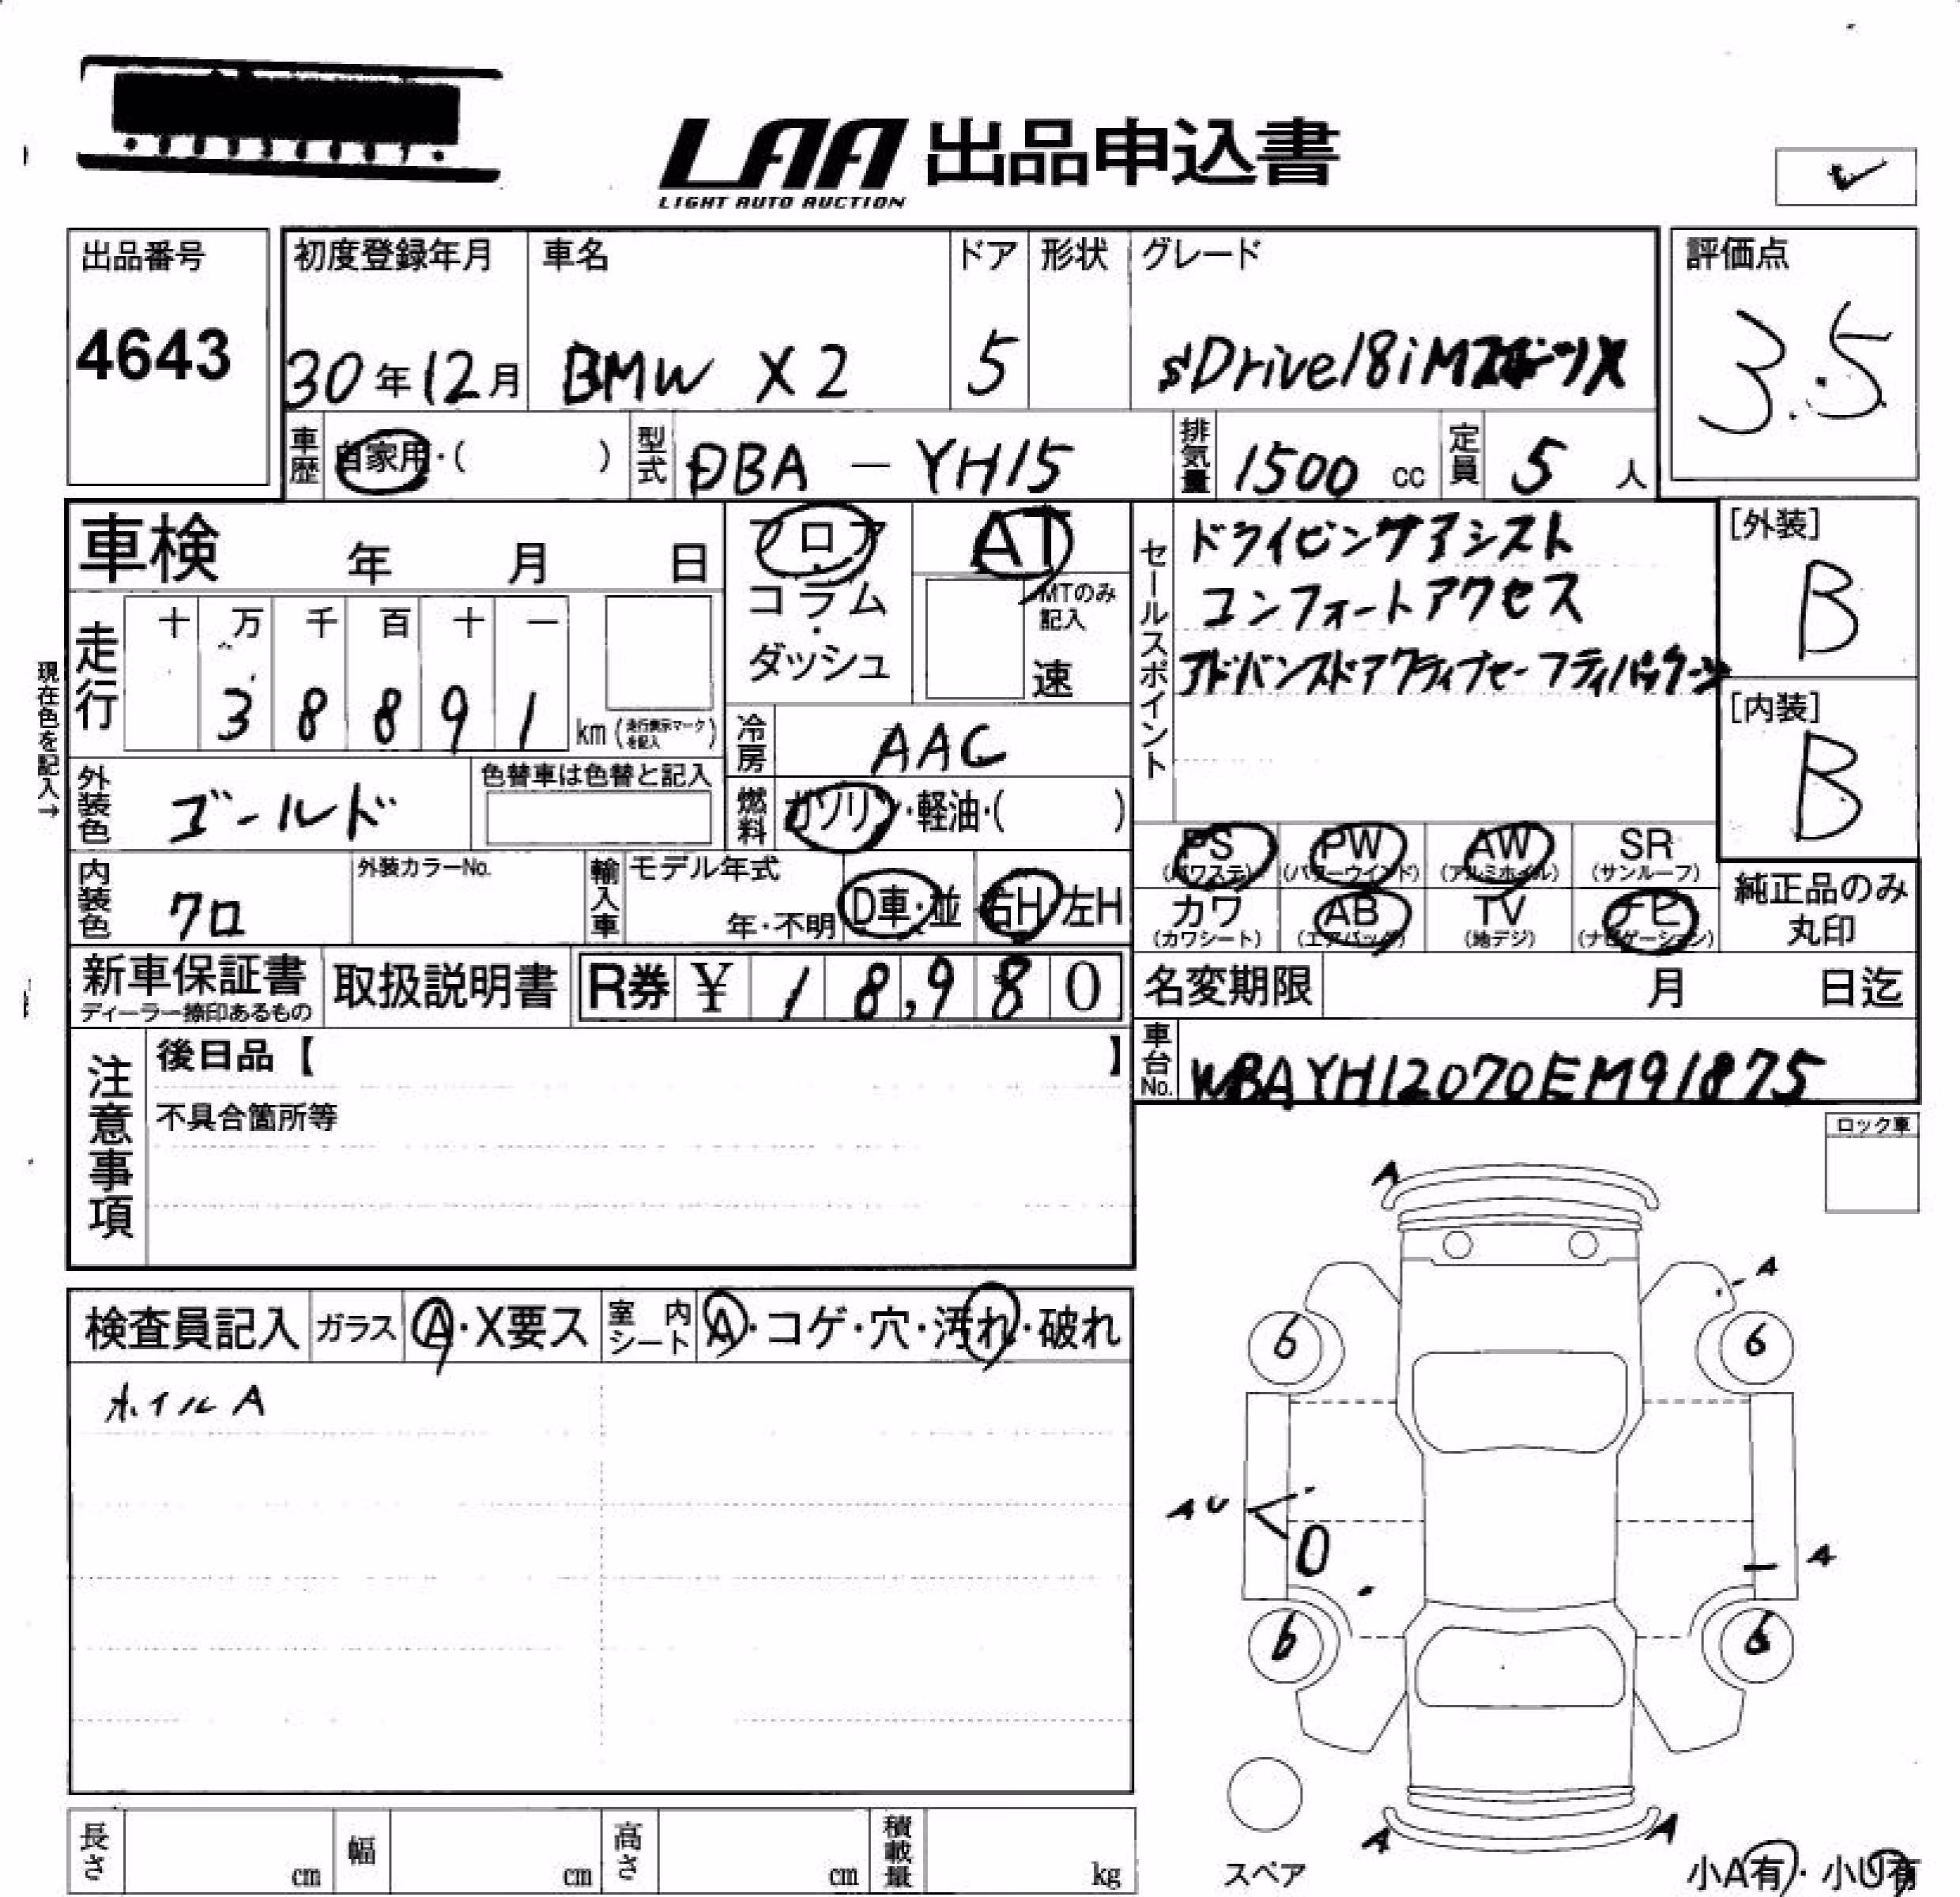 LAA 出品申込書
LIGHT AUTO AUCTION
出品番号
4643
初度登録年月
30年12月
車名
BMW X2
ドア
5
形状
グレード
sDrive18iMスポーツX
評価点
3.5
車歴 自家用・( )
型式 DBA - YH15
排気量 1500 cc
定員 5 人
車検 年 月 日
フロア・コラム・ダッシュ
AT
MTのみ記入
速
セールスポイント
ドライビングアシスト
コンフォートアクセス
アドバンスドアクティブセーフティパッケージ
[外装]
B
[内装]
B
現在色を記入→
走行
十 万 千 百 十 一
3 8 8 9 1
km(走行表示マークを記入)
冷房 AAC
外装色 ゴールド
色替車は色替と記入
燃料 ガソリン・軽油・( )
PS (パワステ)
PW (パワーウインド)
AW (アルミホイル)
SR (サンルーフ)
内装色 クロ
外装カラーNo.
輸入車
モデル年式
年・不明
D車・並
右H 左H
カワ (カワシート)
AB (エアバッグ)
TV (地デジ)
ナビ (ナビゲーション)
純正品のみ
丸印
新車保証書
ディーラー捺印あるもの
取扱説明書
R券 ¥ 18,980
名変期限 月 日迄
注意事項
後日品【 】
不具合箇所等
車台No. WBAYH12070EM91875
ロック車
検査員記入
ガラス A・X要ス
室内シート A・コゲ・穴・汚れ・破れ
ホイルA
A
A
6 6
AU
A
6 6
A A
スペア
小A有・小U有
長さ cm
幅 cm
高さ cm
積載量 kg